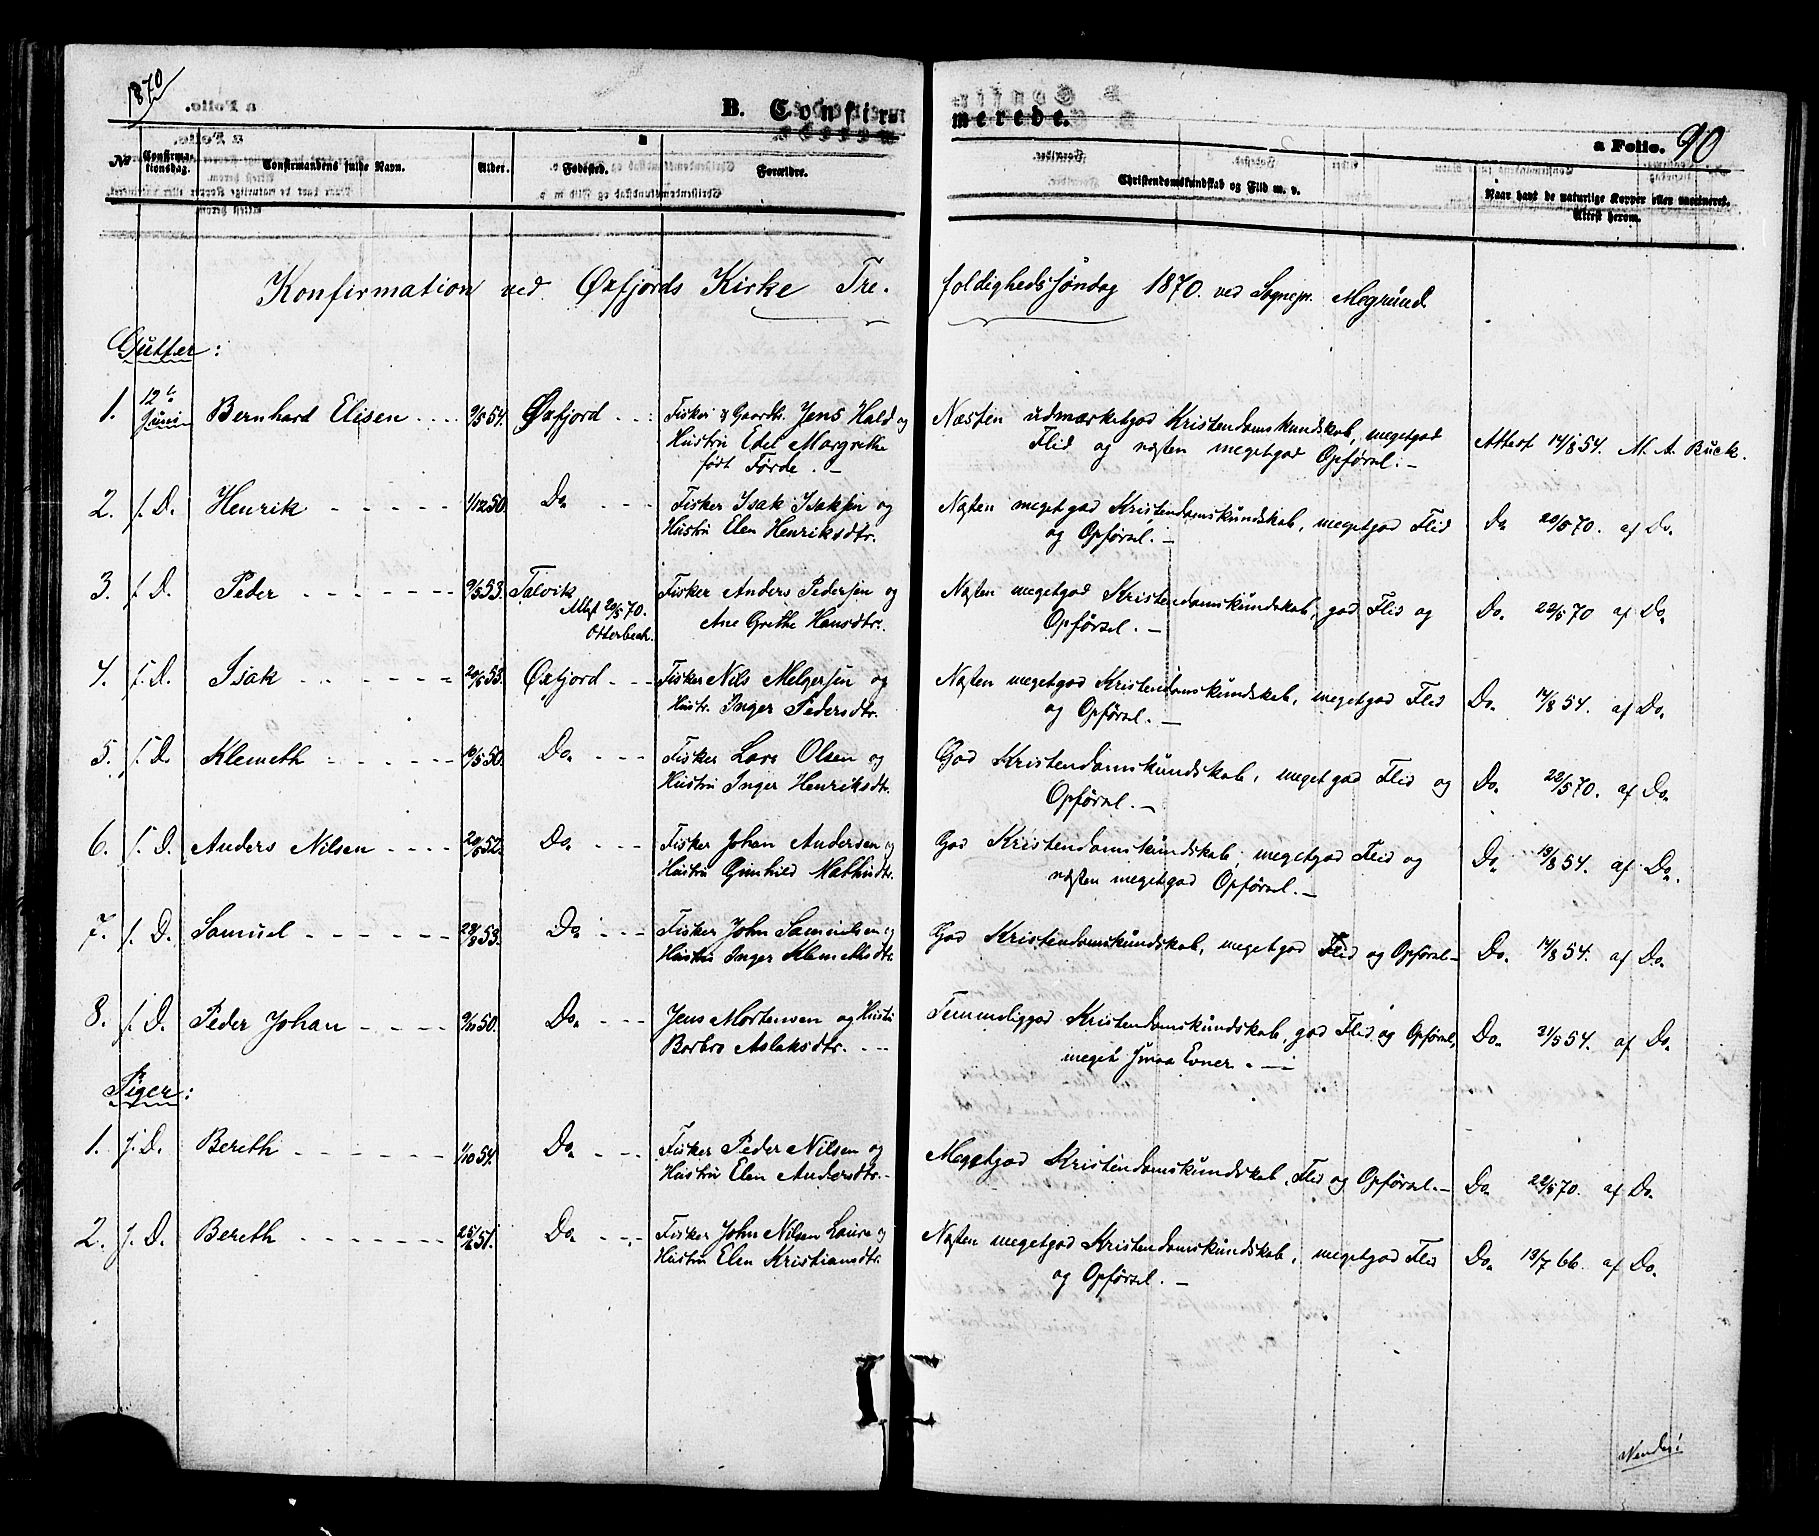 1870
B. Confirmerede.
a Folio. 90
No Confirmationsdag. Confirmandens fulde Navn. Alder. Fødested. Forældre. Christendomskundskab og Flid m. v. Naar havt de naturlige Kopper eller vaccineret. Attest herom.
Konfirmation ved Øxfjords Kirke Trefoldighedssøndag 1870. ved Sognepr. Mogrund.
Gutter:
1. 12te Juni Bernhard Elisen 9/5 54. Øxfjord Fisker & Gaardb. Jens Hald og Næsten udmærketgod Kristendomskundskab, megetgod Attest 14/8 54. M. A. Buck.
Hustru Edel Margrethe Flid og næsten megetgod Opførsel.
født Førde.
2. s. D. Henrik 1/12 50. Do Fisker Isak Isaksen og Næsten megetgod Kristendomskundskab, megetgod Flid Do 20/5 70. af Do.
Hustru Elen Henriksdtr. og Opførsel.
3. s. D. Peder 9/5 53. Talvik Fisker Anders Pedersen og Næsten megetgod Kristendomskundskab, god Flid og Do. 22/5 70 af Do
Attest 20/5 70. Ane Grethe Hansdtr. Opførsel.
Otterbech.
4. s. D. Isak 20/6 53. Øxfjord Fisker Nils Melgersen og Næsten megetgod Kristendomskundskab, megetgod Flid Do. 14/8 54. af Do.
Hustr. Inger Pedersdtr. og Opførsel.
5. s. D. Klemeth 10/5 50. Do. Fisker Lars Olsen og God Kristendomskundskab, megetgod Flid og Do. 22/5 70. af Do.
Hustru Inger Henriksdtr. Opførsel.
6. s. D. Anders Nilsen 20/5 52. Do. Fisker Johan Andersen og God Kristendomskundskab, megetgod Flid og Do 19/8 54. af Do.
Hustru Gunhild Mathisdtr. næsten megetgod Opførsel.
7. s. D. Samuel 28/3 53. Do Fisker John Samuelsen og God Kristendomskundskab, megetgod Flid og Opførsel Do. 14/8 54. af Do.
Hustru Inger Klemetsdtr.
8. s. D. Peder Johan 9/10 50. Do. Jens Mortensen og Hustru Temmeliggod Kristendomskundskab, god Flid og Opførsel, Do. 21/5 54. af Do.
Barbro Aslaksdtr. meget smaa Evner.
Piger:
1. s. D. Bereth 1/10 54. Do Fisker Peder Nilsen og Megetgod Kristendomskundskab, Flid og Opførsel. Do. 22/5 70. af Do.
Hustru Elen Andersdtr.
2. s. D. Bereth 25/2 51. Do Fisker John Nilsen Laura og Næsten megetgod Kristendomskundskab, megetgod Flid Do. 13/7 66. af Do.
Hustru Elen Kristiansdtr. og Opførsel.
Vendes!